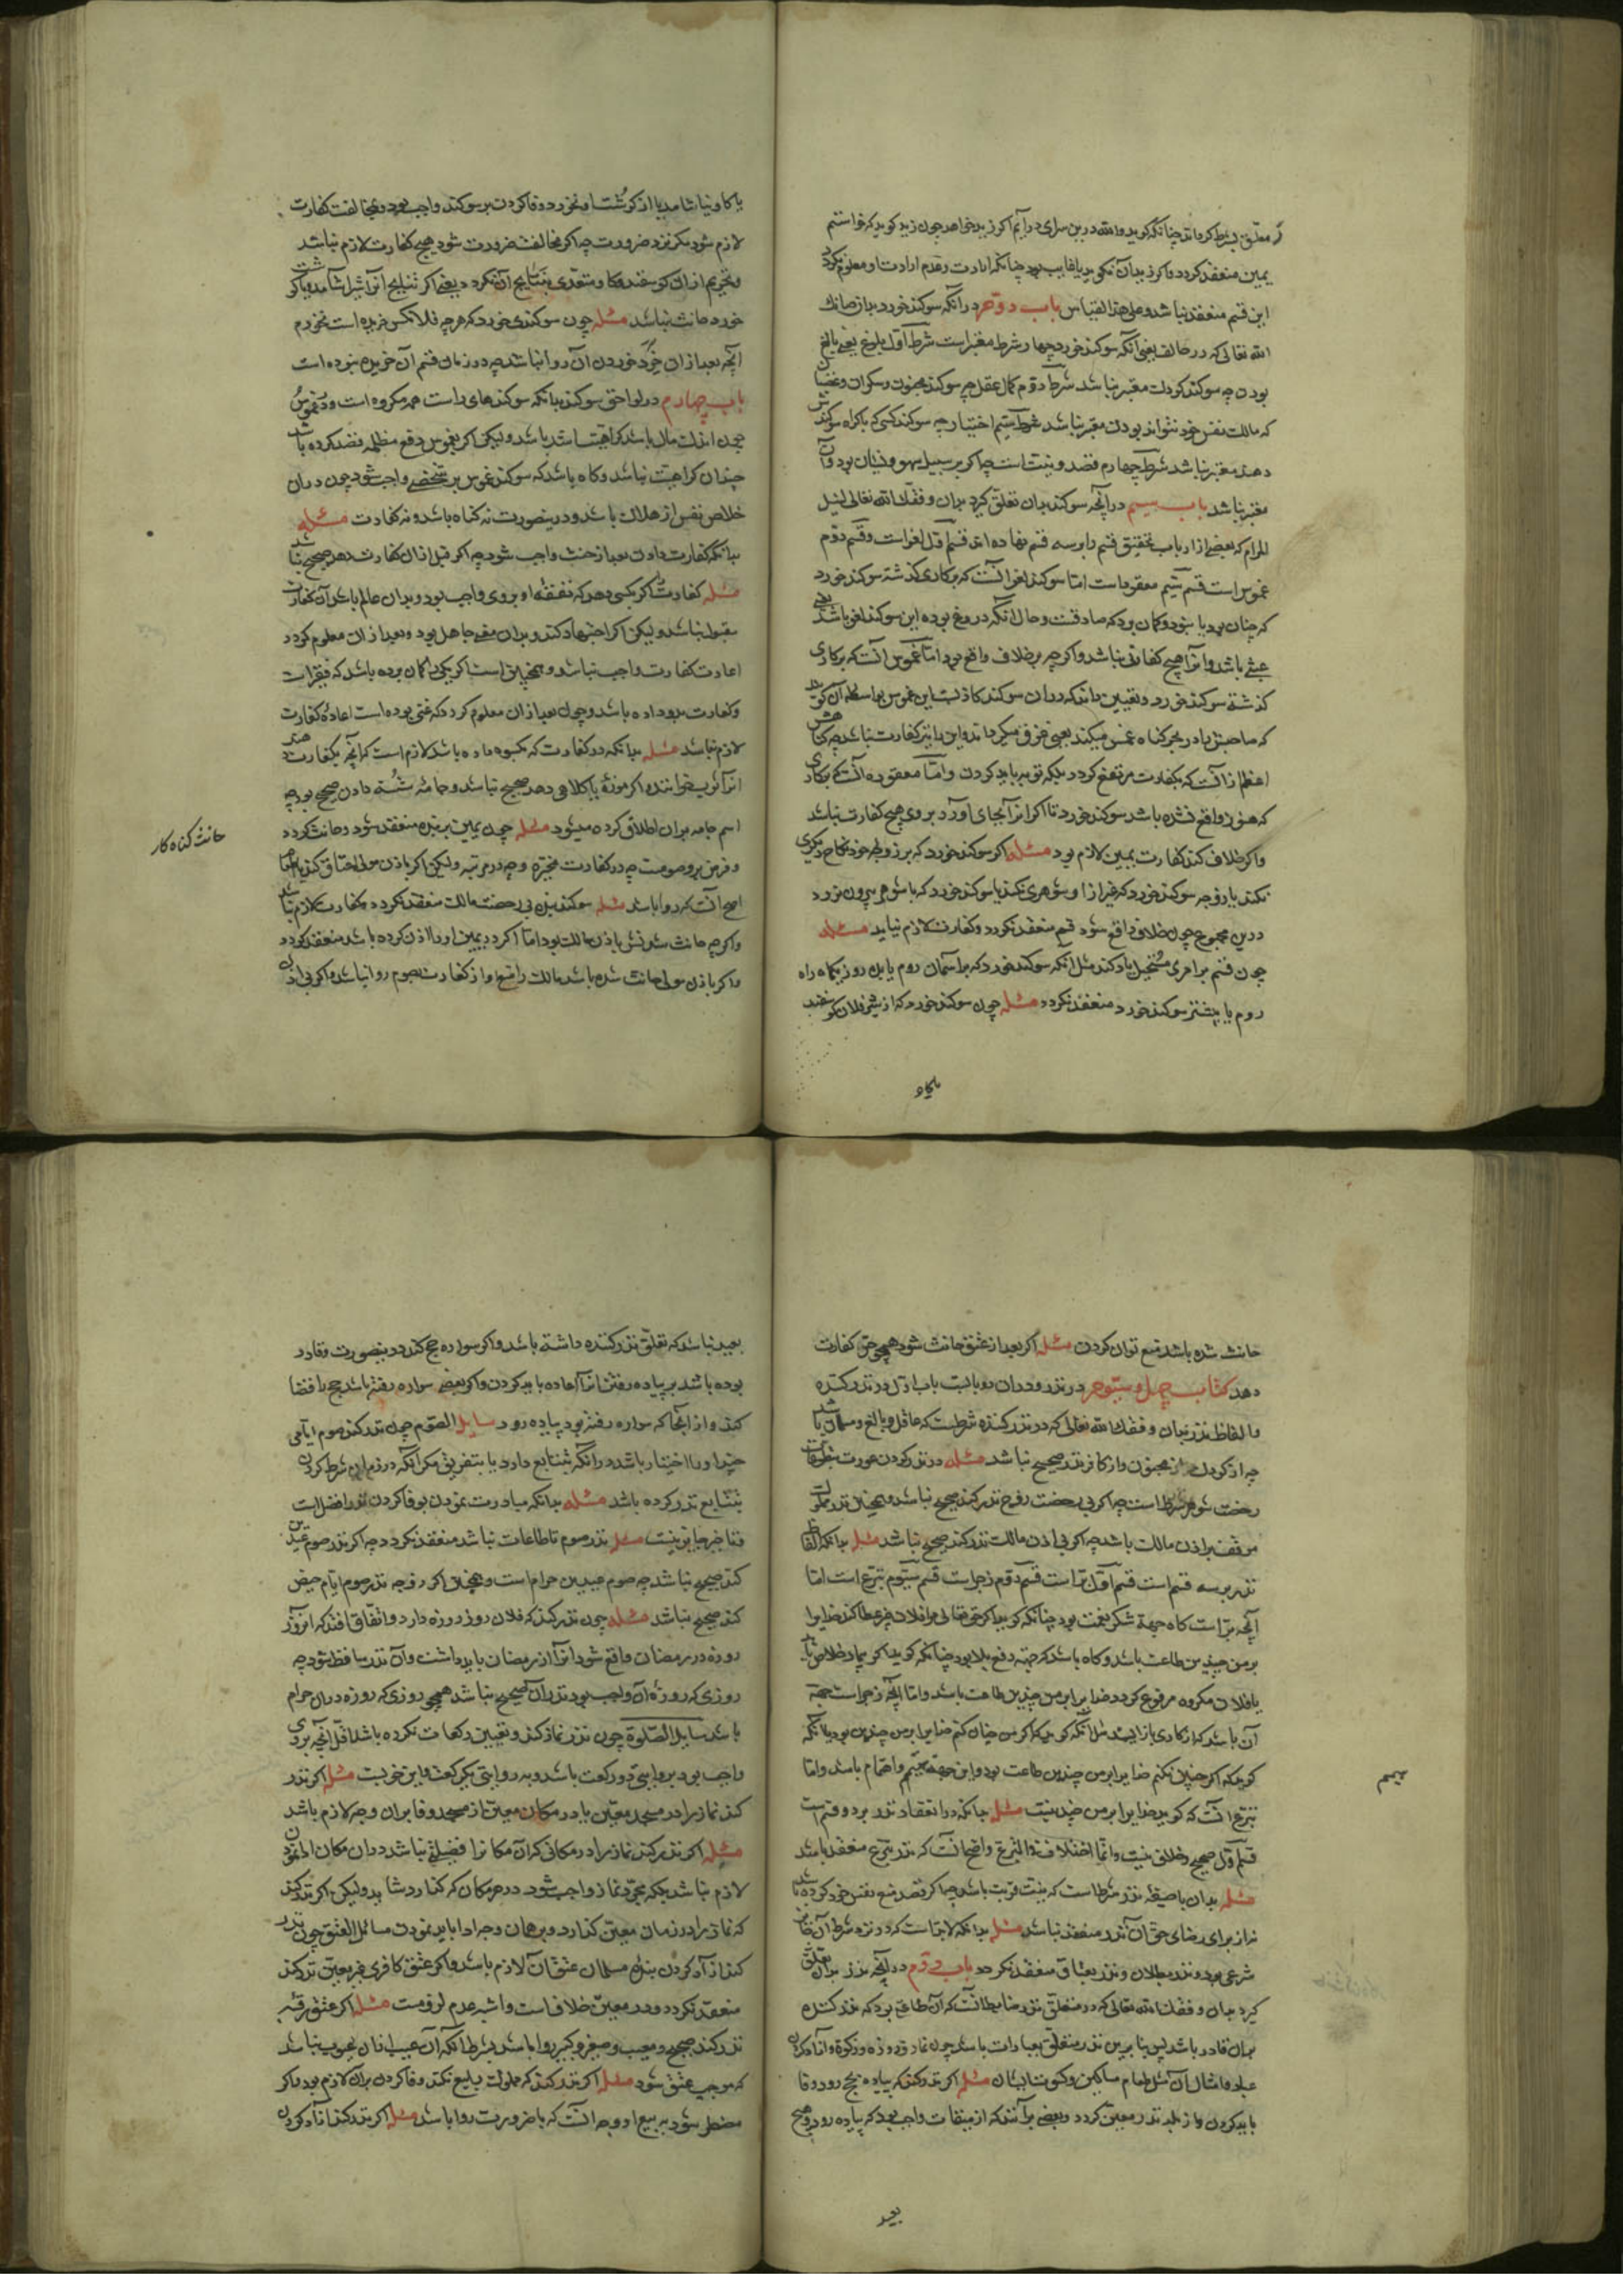 معلق بشرط کرداند چنانکه کوید والله درین سرای درآیم اکر زید خواهد چون زید کوید که خواستم
یمین منعقد کردد واکر زید آن نکوید یا غایب بود چنانکه ارادت وعدم ارادت او معلوم نکردد
این قسم منعقد نباشد وعلی هذا القیاس باب دوم در آنکه سوکند خورد بدان صانک
الله تعالی که در حالف یعنی آنکه سوکند خورد چهار شرط معتبر است شرط اول بلوغ یعنی بالغ
بودن چه سوکند کودک معتبر نباشد شرط دوم کمال عقل چه سوکند مجنون وسکران وغضبان
که مالک نفس خود نتواند بودن معتبر نباشد شرط سیم اختیار چه سوکند کسی که باکراه سوکندش
دهند معتبر نباشد شرط چهارم قصد ونیت است چه اکر بر سبیل سهو ونسیان بود آن
معتبر نباشد باب سیم در آنچه سوکند بدان تعلق کیرد بدان وفقک الله تعالی لنیل
المرام که بعضی از ارباب تحقیق قسم را بر سه قسم نهاده اند قسم اول لغو است وقسم دوم
غموس است قسم سیم معقوده است اما سوکند لغو آنست که بر کاری کذشته سوکند خورد
که چنان بود یا نبود وکمان برد که صادقست وحال آنکه دروغ بوده این سوکند لغو باشد یعنی
عبثی باشد وآنرا هیچ کفارتی نباشد واکرچه بر خلاف واقع بود اما غموس آنست که بر کاری
کذشته سوکند خورد وبیقین داند که در آن سوکند کاذبست این غموس بواسطه آن کویند
که صاحبش را در بحر کناه غمس میکند یعنی غرق میکرداند واین را نیز کفارت نباشد چه کناهش
اعظم از آنست که بکفارت مرتفع کردد بلکه توبه باید کردن واما معقوده آنست که بر کاری
که هنوز واقع نشده باشد سوکند خورد تا اکر آنرا بجای آورد بر وی هیچ کفارت نباشد
واکر خلاف کند کفارت یمین لازم بود مسئله اکر سوکند خورد که بر زوجه خود نکاح دیکری
نکند یا زوجه سوکند خورد که غیر از او شوهری نکند یا سوکند خورد که با شوهر بیرون نرود
درین مجموع چون خلاف واقع شود قسم منعقد نکردد وکفارت لازم نیاید مسئله
چون قسم بر امری مستحیل یاد کند مثل آنکه سوکند خورد که بر آسمان روم یا بیک روز یکماه راه
روم یا بیشتر سوکند خورد منعقد نکردد مسئله چون سوکند خورد که از شیر فلان کوسفند
یا کاو نیاشامد یا از کوشت او نخورد وفا کردن بر سوکند واجب بود وبمخالفت کفارت
لازم شود مکر نزد ضرورت چه اکر مخالفت ضرورت شود هیچ کفارت لازم نباشد
وتحریم از آن کوسفند وکاو متعدی بنتایج آن نکردد یعنی اکر نتایج آنرا شیر آشامد ویا کوشت
خورد حانث نباشد مسئله چون سوکندی خورد که هرچه فلانکس خریده است نخورم
آنچه بعد از آن خرد خوردن آن روا باشد چه در زمان قسم آن خریده نبوده است
باب چهارم در لواحق سوکند بدانکه سوکندهای راست همه مکروه است ودر غموس
چون اندک مال باشد کراهیت اشد باشد ولیکن اکر بغموس دفع مظلمه قصد کرده باشد
چندان کراهیت نباشد وکاه باشد که سوکند غموس بر شخصی واجب شود چون در آن
خلاص نفس از هلاک باشد ودرینصورت نه کناه باشد ونه کفارت مسئله
بدانکه کفارت دادن بعد از حنث واجب شود چه اکر قبل از آن کفارت دهد صحیح نباشد
مسئله کفارت اکر بکسی دهد که نفقه او بر وی واجب بود وبدان عالم باشد آن کفارت
مقبول نباشد ولیکن اکر اجتهاد کند وبدان معنی جاهل بود وبعد از آن معلوم کردد
اعادت کفارت واجب نباشد وهمچنین است اکر یکی را کمان برده باشد که فقیر است
وکفارت بدو داده باشد وچون بعد از آن معلوم کردد که غنی بوده است اعاده کفارت
لازم نباشد مسئله بدانکه در کفارت که بکسوه داده باشد لازم است که آنچه بکفارت دهند
آنرا ثوب خوانند واکر موزه یا کلاهی دهد صحیح نباشد وجامه شسته دادن صحیح بود چه
اسم جامه بران اطلاق کرده میشود مسئله چون یمین بر بنده منعقد شود وحانث کردد
وفرض برو صومست چه در کفارت مخیره وچه در مرتبه ولیکن اکر باذن مولی اعتاق کند یا اطعام
اصح آنست که روا باشد مسئله سوکند بنده بی رخصت مالک منعقد نکردد وکفارت لازم نباشد
واکرچه حانث شدنش باذن مالک بود اما اکر در یمین او را اذن کرده باشد منعقد کردد
واکر باذن مولی حانث شده باشد مالک را منع او از کفارت بصوم روا نباشد واکر بی اذن
حانث کناه کار
یا کاو
حانث شده باشد منع توان کردن مسئله اکر بعد از عتق حانث شود همچو حر کفارت
دهد کتاب چهل وسیوم در نذر ودر آن دو بابست باب اول در نذر کننده
والفاظ نذر بدان وفقک الله تعالی که در نذر کننده شرطست که عاقل وبالغ ومسلمان باشد
چه از کودک مجنون واز کافر نذر صحیح نباشد مسئله در نذر کردن عورت بتطوعات
رخصت شوهر شرط است چه اکر بی رخصت زوج نذر کند صحیح نباشد وهمچنین نذر مملوک
موقف بر اذن مالک باشد چه اکر بی اذن مالک نذر کند صحیح نباشد مسئله بدانکه الفاظ
نذر بر سه قسم است قسم اول بر است قسم دوم زجر است قسم سیوم تبرع است اما
آنچه بر است کاه جهة شکر نعمت بود چنانکه کوید اکر حق تعالی مرا فلان چیز عطا کند خدایرا
بر من چندین طاعت باشد وکاه باشد که جهة دفع بلا بود چنانکه کوید اکر بیمار خلاص یابد
یا فلان مکروه مرفوع کردد خدایرا بر من چندین طاعت باشد واما آنچه زجر است جهة
آن باشد که از کاری باز ایستد مثل آنکه کوید که اکر من چنان کنم خدایرا بر من چندین بود یا آنکه
کوید که اکر چنین نکنم خدایرا بر من چندین طاعت بود واین جهة تتمیم واهتمام باشد واما
تبرع آنست که کوید خدایرا بر من چندینست مسئله بدانکه در انعقاد نذر بر دو قسم است
قسم اول صحیح وخلافی نیست وانما اختلاف فی التبرع واصح آنست که نذر تبرع منعقد باشد
مسئله بدان با صیغه نذر شرط است که بنیت قربت باشد چه اکر قصد منع نفس خود کرده باشد
نه از برای رضای حق آن نذر منعقد نباشد مسئله بدانکه لابد است که در نذر شرط آن
شرعی بود ونذر بطلاق ونذر بعتاق منعقد نکردد باب دوم در آنچه نذر بدان تعلق
کیرد بدان وفقک الله تعالی که در متعلق نذر ضابط آنست که آن طاعتی بود که نذر کننده
بر آن قادر باشد پس بنابرین نذر متعلق بعبادات باشد چون نماز وروزه وزکوة وآزاد کردن
عبد وامثال آن مثل طعام مساکین وکسوت ایشان مسئله اکر نذر کند که پیاده بحج رود وفا
باید کردن واز بلد نذر معین کردد وبعضی برآنند که از میقات واجب بود که پیاده رود وهیچ
تتمیم
بعید
بعید نباشد که تعلق نذر کننده داشته باشد واکر سواره حج کند درینصورت وقادر
بوده باشد بر پیاده رفتن آنرا اعاده باید کردن واکر بعضی سواره رفته باشد حج را قضا
کند واز آنجا که سواره رفته بود پیاده رود مسایل الصوم چون نذر کند صوم ایامی
چند او را اختیار باشد در آنکه بتتابع دارد یا بتفریق مکر آنکه در نذر شرط کردن
بتتابع نذر کرده باشد مسئله بدانکه مبادرت نمودن بوفا کردن نذر افضل است
وتاخیر جایز نیست مسئله نذر صوم تا طاعات نباشد منعقد نکردد چه اکر نذر صوم عیدین
کند صحیح نباشد چه صوم عیدین حرام است وهمچنین اکر زوجه نذر صوم ایام حیض
کند صحیح نباشد مسئله چون نذر کند که فلان روز روزه دارد واتفاق افتد که آنروز
روزه در رمضان واقع شود آنرا از رمضان باید داشت وآن نذر ساقط شود چه
روزی که روزه آن واجب بود نذر آن صحیح نباشد همچو روزی که روزه در آن حرام
باشد مسایل الصلوة چون نذر نماز کند وتعیین رکعات نکرده باشد اقل آنچه بر وی
واجب بود بروایتی دو رکعت باشد وبه روایتی یک رکعت واین خوبست مسئله اکر نذر
کند نماز را در مسجد معین یا در مکان معین از مسجد وفا بران وجه لازم باشد
مسئله اکر نذر کند نماز را در مکانی که آن مکانرا فضیلتی نباشد در آن مکان ادا نمودن
لازم نباشد بلکه مجرد نماز واجب شود در هر مکان که کذارد شاید ولیکن اکر نذر کند
که نماز را در زمان معین کذارد وبر همان وجه ادا باید نمودن مسائل العتق چون نذر
کند آزاد کردن بنده مسلمان عتق آن لازم باشد واکر عتق کافری غیر معین نذر کند
منعقد نکردد ودر معین خلاف است واشبه عدم لزومست مسئله اکر عتق رقبه
نذر کند صحیح ومعیب وصغیر وکبیر روا باشد بشرط آنکه آن عیب از آن عیوب نباشد
که موجب عتق شود مسئله اکر نذر کند که مملوک را بیع نکند وفا کردن بر آن لازم بود واکر
مضطر شود به بیع او وجه آنست که با ضرورت روا باشد مسئله اکر نذر کند آزاد کردن